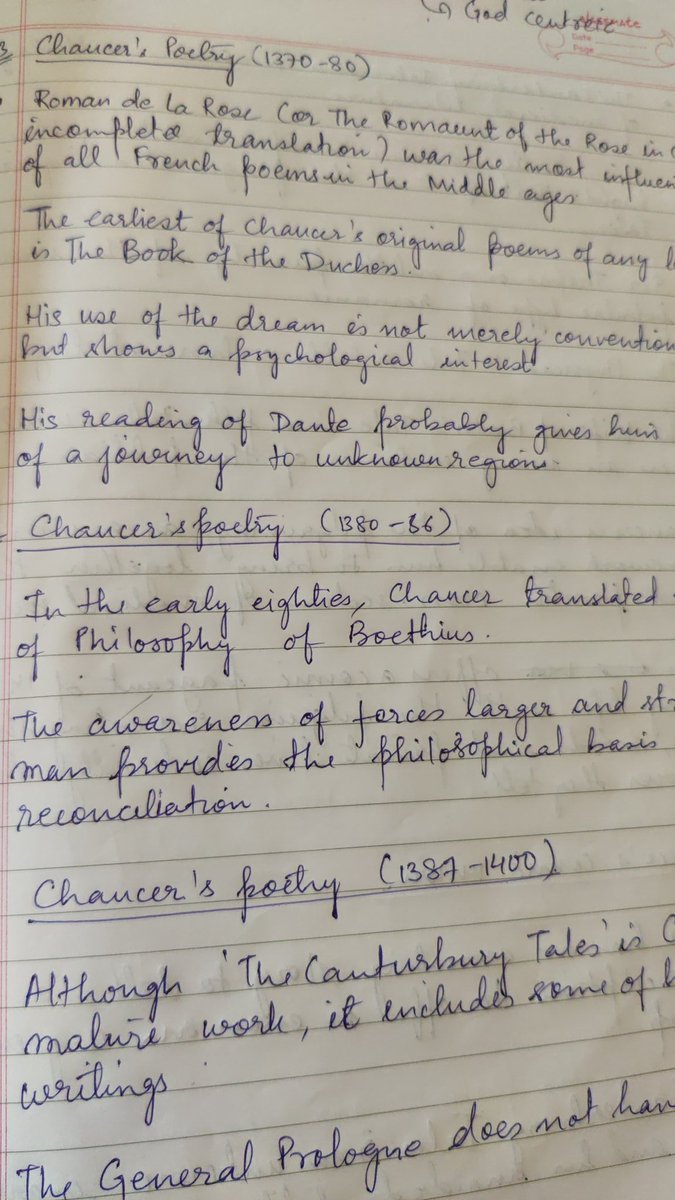 ↳ God centric
Date
Page
3 Chaucer's Poetry (1370-80)
Roman de la Rose (or The Romaunt of the Rose in
incomplete translation) was the most influen
of all French poems in the Middle ages
The earliest of Chaucer's original poems of any l
is The Book of the Duchess.
His use of the dream is not merely convention
but shows a psychological interest.
His reading of Dante probably gives him
of a journey to unknown regions.
Chaucer's poetry (1380-86)
In the early eighties, Chaucer translated
of Philosophy of Boethius.
The awareness of forces larger and st
man provides the philosophical basis
reconciliation.
Chaucer's poetry (1387-1400)
Although 'The Canturbury Tales' is C
mature work, it includes some of h
writings
The General Prologue does not han